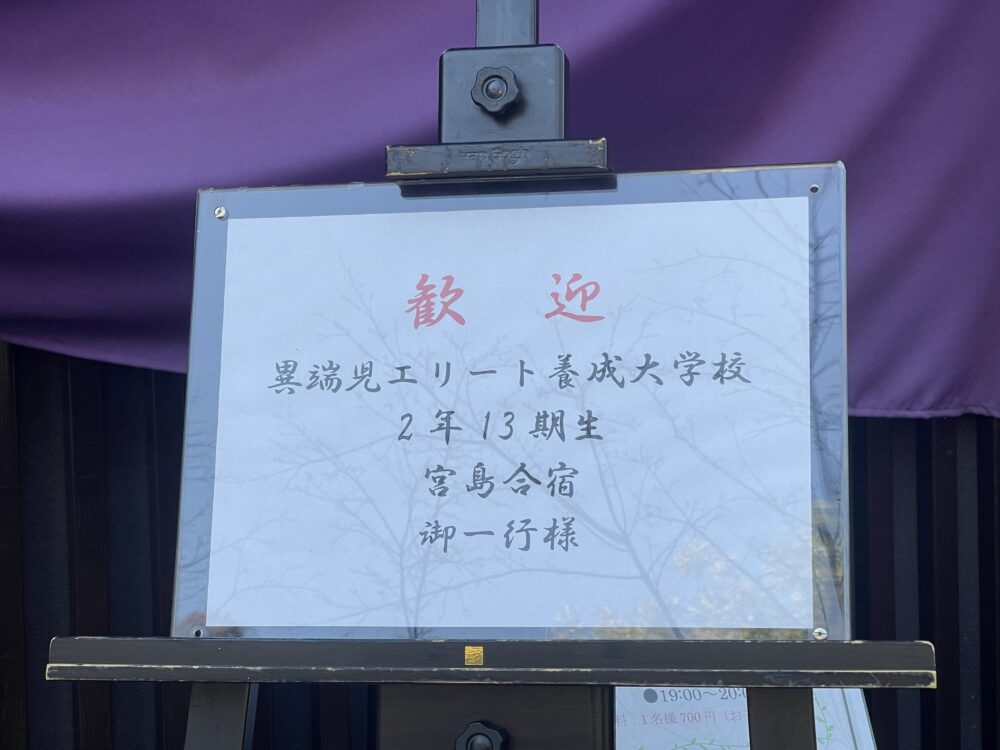 歓 迎
異端児エリート養成大学校
2年13期生
宮島合宿
御一行様
●19:00～20:
料：1名様700円（お